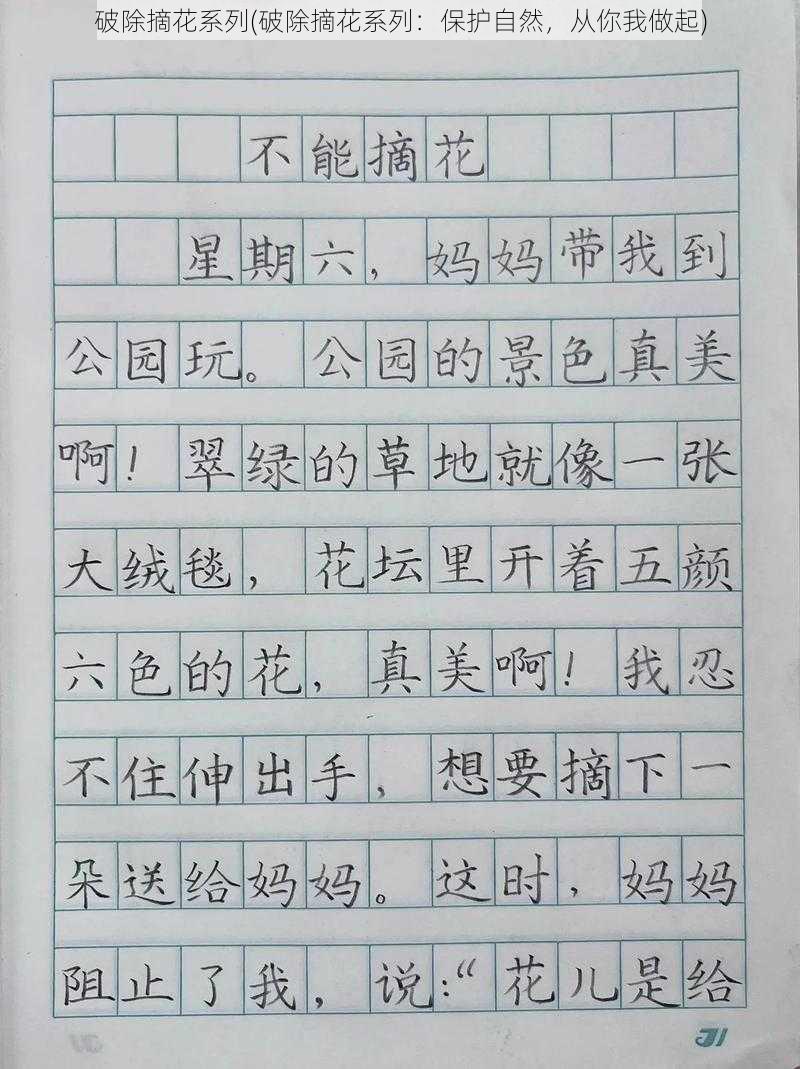 破除摘花系列(破除摘花系列：保护自然，从你我做起)
不能摘花
星期六，妈妈带我到
公园玩。公园的景色真美
啊！翠绿的草地就像一张
大绒毯，花坛里开着五颜
六色的花，真美啊！我忍
不住伸出手，想要摘下一
朵送给妈妈。这时，妈妈
阻止了我，说：“花儿是给